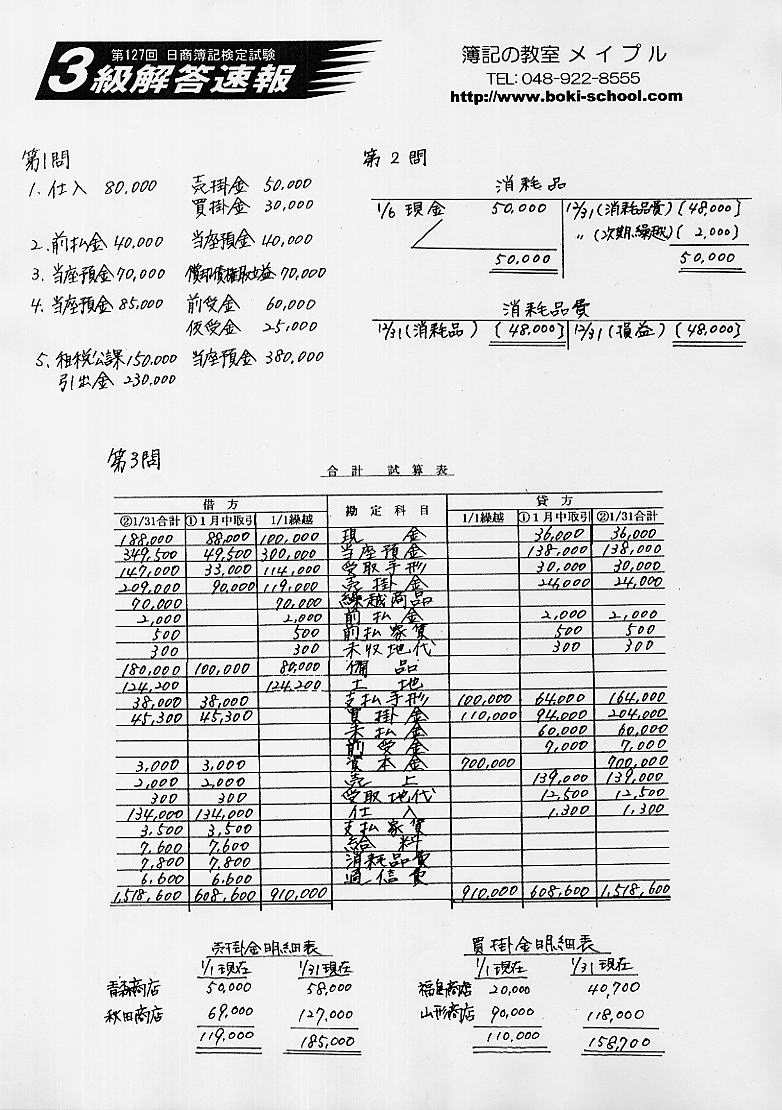 第127回 日商簿記検定試験
3級解答速報
簿記の教室 メイプル
TEL: 048-922-8555
http://www.boki-school.com
第1問
1. 仕入 80,000 売掛金 50,000
買掛金 30,000
2. 前払金 40,000 当座預金 40,000
3. 当座預金 70,000 償却債権取立益 70,000
4. 当座預金 85,000 前受金 60,000
仮受金 25,000
5. 租税公課 150,000 当座預金 380,000
引出金 230,000
第2問
消耗品
1/6 現金 50,000 12/31 (消耗品費) [48,000]
〃 (次期繰越) [2,000]
50,000 50,000
消耗品費
12/31 (消耗品) [48,000] 12/31 (損益) [48,000]
第3問
合計試算表
借方 勘定科目 貸方
②1/31合計 ①1月中取引 1/1繰越 1/1繰越 ①1月中取引 ②1/31合計
188,000 88,000 100,000 現金 36,000 36,000
349,500 49,500 300,000 当座預金 138,000 138,000
147,000 33,000 114,000 受取手形 30,000 30,000
209,000 90,000 119,000 売掛金 24,000 24,000
70,000 70,000 繰越商品
2,000 2,000 前払金 2,000 2,000
500 500 前払家賃 500 500
300 300 未収地代 300 300
180,000 100,000 80,000 備品
124,200 124,200 土地
38,000 38,000 支払手形 100,000 64,000 164,000
45,300 45,300 買掛金 110,000 94,000 204,000
未払金 60,000 60,000
前受金 7,000 7,000
3,000 3,000 資本金 700,000 700,000
2,000 2,000 売上 139,000 139,000
300 300 受取地代 12,500 12,500
134,000 134,000 仕入 1,300 1,300
3,500 3,500 支払家賃
7,600 7,600 給料
7,800 7,800 消耗品費
6,600 6,600 通信費
1,518,600 608,600 910,000 910,000 608,600 1,518,600
売掛金明細表
1/1現在 1/31現在
青森商店 50,000 58,000
秋田商店 69,000 127,000
119,000 185,000
買掛金明細表
1/1現在 1/31現在
福島商店 20,000 40,700
山形商店 90,000 118,000
110,000 158,700